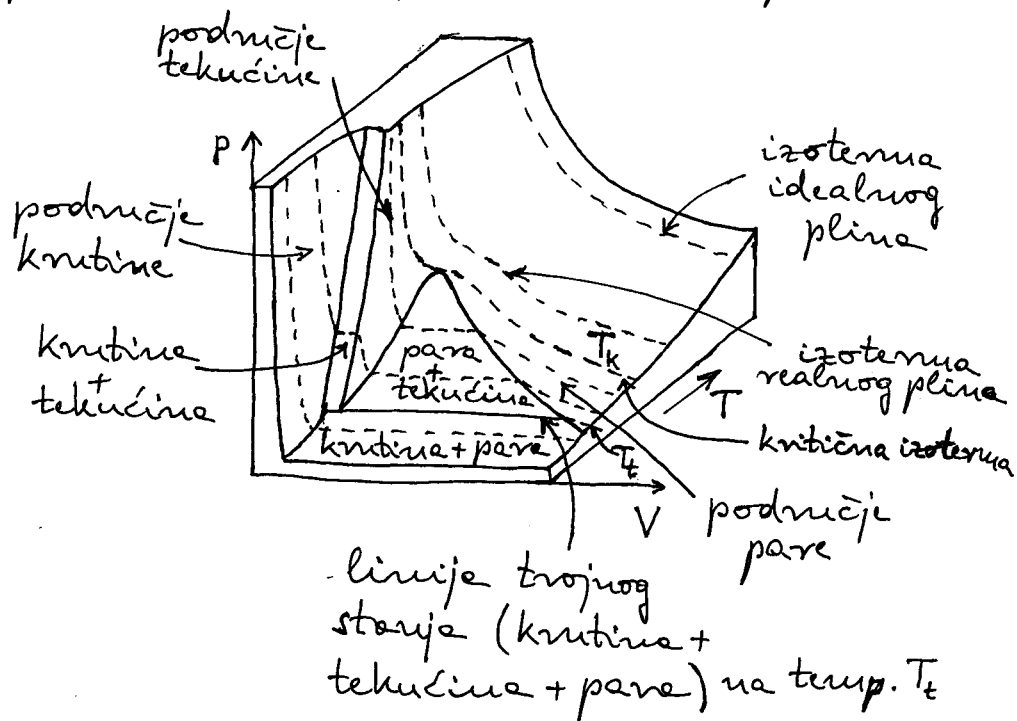 područje
tekućine
p
izoterma
idealnog
plina
područje
krutine
krutina
+
tekućina
para
+
tekućina
T_k
izoterma
realnog plina
T
kritična izoterma
krutina + para
T_t
V
područje
pare
linija trojnog
stanja (krutina +
tekućina + para) na temp. T_t